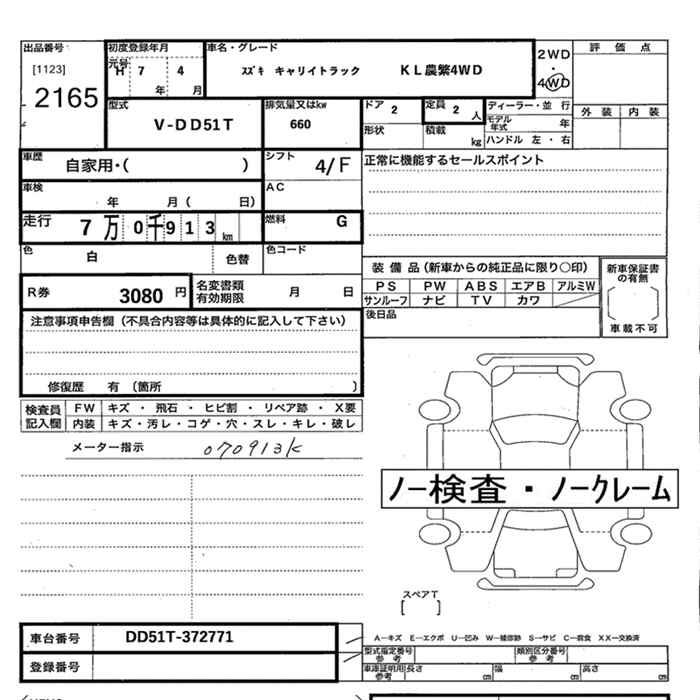 出品番号
[1123]
2165
初度登録年月
元号
H 7 4
年 月
車名・グレード
スズキ キャリイトラック KL農繁4WD
2WD
・
4WD
評価点
外装 内装
型式
V-DD51T
排気量又はkw
660
ドア 2
形状
定員 2 人
積載 kg
ディーラー・並行
モデル年式 年
ハンドル 左・右
車歴
自家用・( )
シフト
4/F
正常に機能するセールスポイント
車検
年 月( 日)
AC
走行
7万0千913km
燃料
G
色
白
色替
色コード
装備品(新車からの純正品に限り○印)
PS PW ABS エアB アルミW
サンルーフ ナビ TV カワ
新車保証書
の有無
車載不可
R券
3080 円
名変書類
有効期限
月 日
後日品
注意事項申告欄(不具合内容等は具体的に記入して下さい)
修復歴 有〔箇所 〕
検査員
記入欄
FW キズ・飛石・ヒビ割・リペア跡・X要
内装 キズ・汚レ・コゲ・穴・スレ・キレ・破レ
メーター指示 070913K
ノー検査・ノークレーム
スペアT
[ ]
車台番号
DD51T-372771
登録番号
A―キズ E―エクボ U―凹み W―補修跡 S―サビ C―腐食 XX―交換済
型式指定番号
参考
類別区分番号
参考
車庫証明用
参考
長さ cm
幅 cm
高さ cm